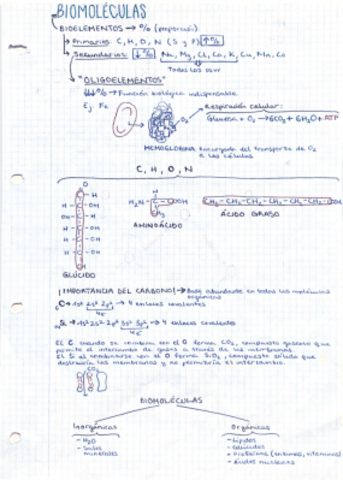 BIOMOLÉCULAS
BIOELEMENTOS → % (proporción).
→ Primarios: C, H, O, N (S y P) ↑%
→ Secundarios: ↓% Na, Mg, Cl, Ca, K, Cu, Mn, Co
Todos los
"OLIGOELEMENTOS"
↓↓% → Función biológica indispensable.
Ej Fe
Respiración celular:
O₂
Glucosa + O₂ → 6CO₂ + 6H₂O + ATP
HEMOGLOBINA encargada del transporte de O₂
a las células
C, H, O, N
GLÚCIDO
AMINOÁCIDO
CH₃-CH₂-CH₂-CH₂-CH₂-CH₂-COOH
ÁCIDO GRASO
¡IMPORTANCIA DEL CARBONO! → Base abundante en todas las moléculas
orgánicas
₆C → 1s² 2s² 2p² → 4 enlaces covalentes
4e⁻
₁₄Si → 1s² 2s² 2p⁶ 3s² 3p² → 4 enlaces covalentes
4e⁻
El C cuando se combina con el O forma CO₂, compuesto gaseoso que
permite el intercambio de gases a través de las membranas.
El Si al combinarse con el O forma SiO₂, compuesto sólido que
destruiría las membranas y no permitiría el intercambio.
CO₂
BIOMOLÉCULAS
Inorgánicas
- H₂O
- Sales
minerales
Orgánicas
- Lípidos
- Glúcidos
- Proteínas (enzimas, vitaminas)
- Ácidos nucleicos